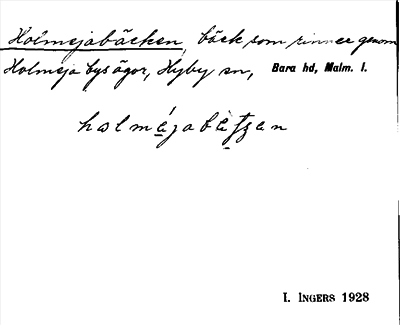 Holmejabäcken, bäck som rinner genom
Holmeja bys ägor, Hyby sn, Bara hd, Malm. l.
I. INGERS 1928